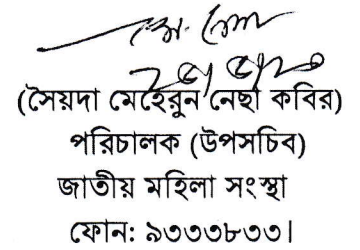 (সৈয়দা মেহেরুন নেছা কবির)
পরিচালক (উপসচিব)
জাতীয় মহিলা সংস্থা
ফোন: ৯৩৩৩৮৩৩।